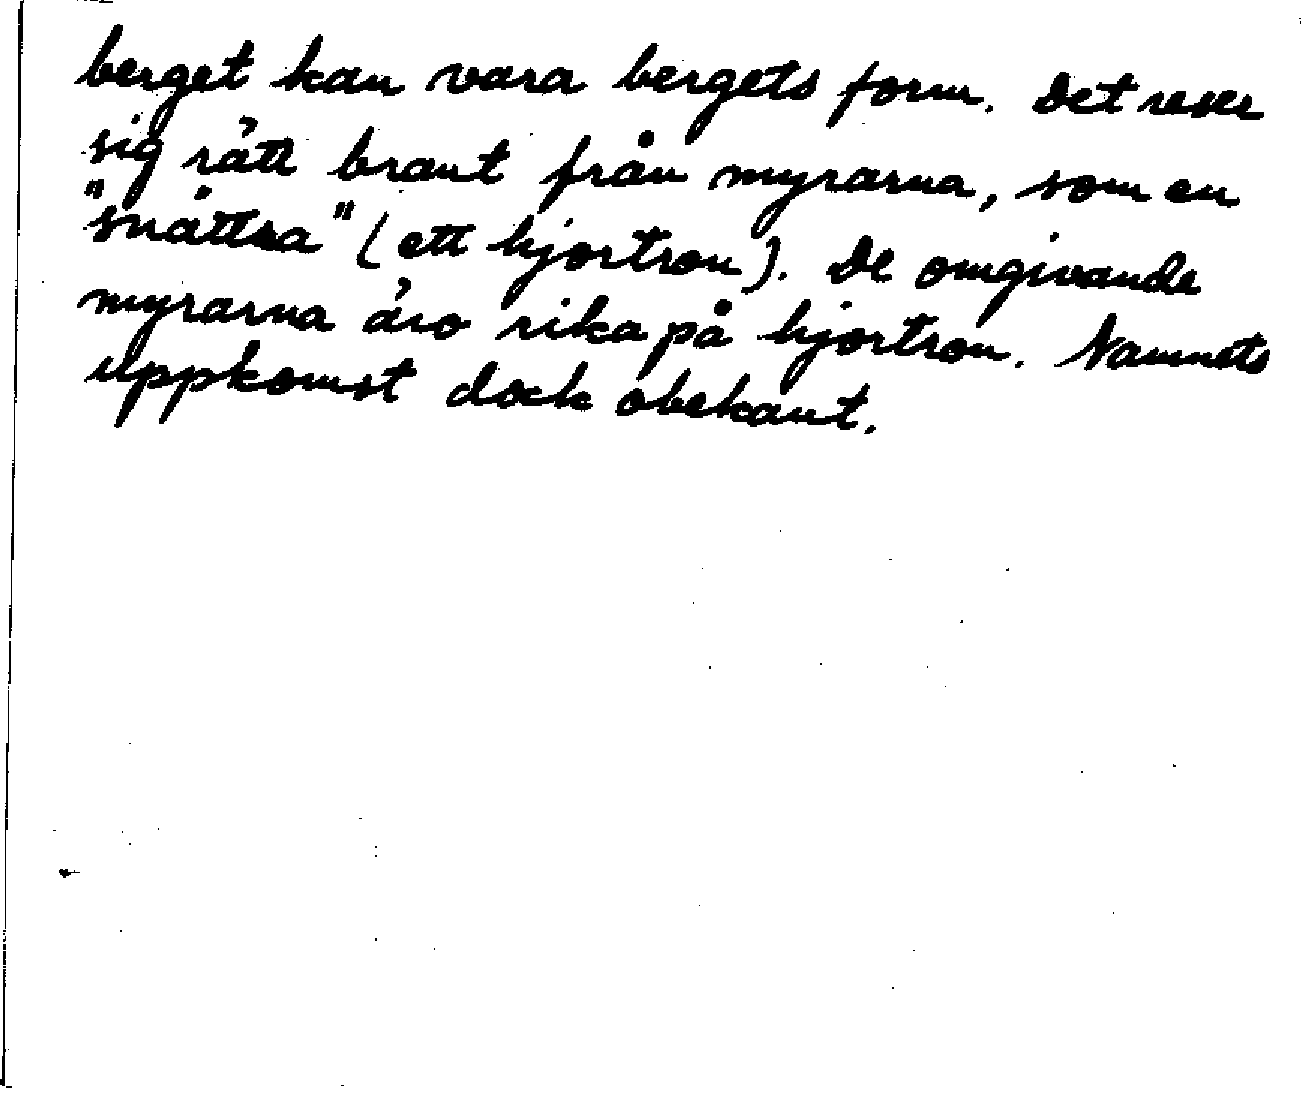 berget kan vara bergets form. Det reser
sig rätt brant från myrarna, som en
"snättra" (ett hjortron). De omgivande
myrarna äro rika på hjortron. Namnets
uppkomst dock obekant.